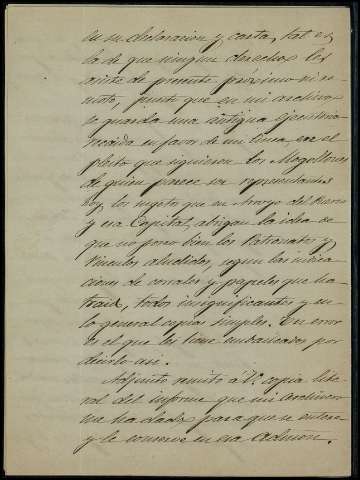 en su declaracion y carta, tal es,
la de que ningun derechos les
asiste de presente próximo ni re-
moto, puesto que en mi archivo
se guarda una antigua ejecutoria
recaida en favor de mi linea, en el
pleito que siguieron los Mogollones
de quien parece son representantes
hoy, los sujetos que en Arroyo del Puerco
y esa Capital, abrigan la idea de
que no poseo bien los Patronatos y
Vinculos aludidos, segun las indica-
ciones de corrales y papeles que ha
traido, todos insignificantes y en
lo general copias simples. Un error
es el que les tiene embaucados por
decirlo asi.
Adjunto remito á V. copia lite-
ral del informe que mi archivero
me ha dado para que se entere
y le conserve en esa Admon.